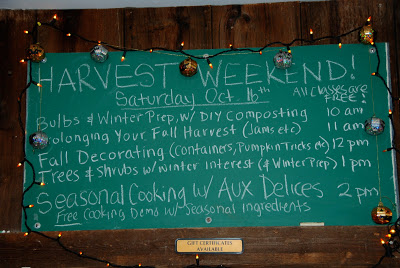 HARVEST WEEKEND!
Saturday Oct 16th
All classes are FREE!
Bulbs & Winter Prep, w/ DIY Composting 10 am
Prolonging Your Fall Harvest (Jams etc) 11 am
Fall Decorating (Containers, Pumpkin Tricks etc) 12 pm
Trees & Shrubs w/ Winter Interest (& Winter Prep) 1 pm
Seasonal Cooking w/ Aux Delices 2 pm
Free Cooking Demo w/ Seasonal Ingredients
GIFT CERTIFICATES
AVAILABLE